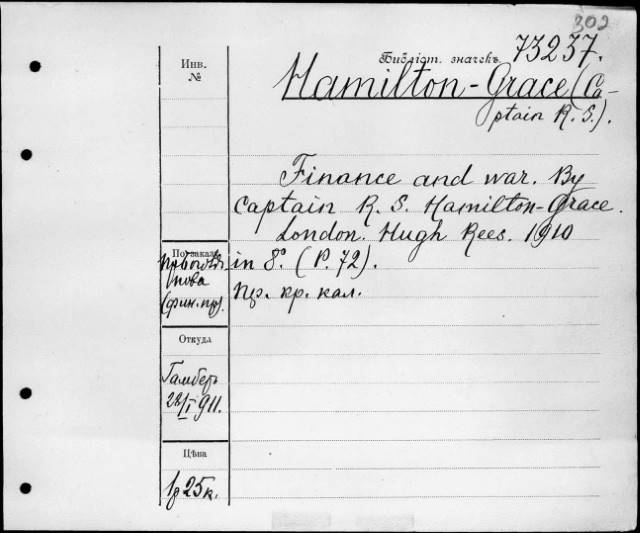 302
Инв.
№
Библіот. значекъ 73237.
Hamilton-Grace (Ca-
ptain R. S.).
Finance and war. By
Captain R. S. Hamilton-Grace.
London. Hugh Rees. 1910
in 8°. (P. 72).
Пр. кр. кал.
По заказу
пова
(фин. пр).
Откуда
Гамберъ
28/I 911.
Цѣна
1р 25к.